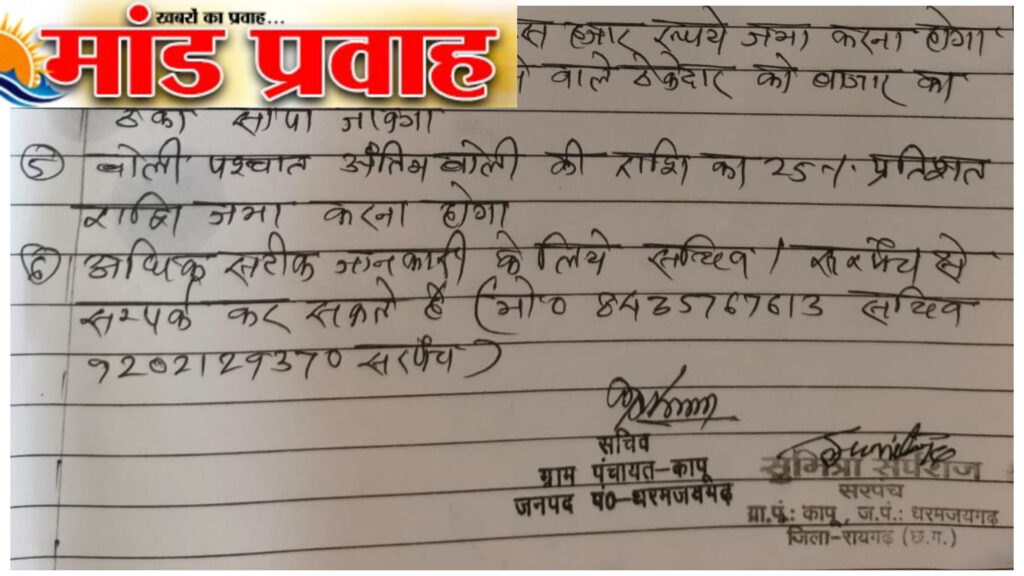 खबरों का प्रवाह...
मांड प्रवाह
हजार रूपये जमा करना होगा
वाले ठेकेदार को बाजार का
ठेका सौंपा जायेगा
5 बोली पश्चात अंतिम बोली की राशि का 25%. प्रतिशत
राशि जमा करना होगा
6 अधिक सटीक जानकारी के लिये सचिव / सरपंच से
सम्पर्क कर सकते है (मो० 8435767613 सचिव
9202129370 सरपंच)
सचिव
ग्राम पंचायत-कापू
जनपद पं०-धरमजयगढ़
सुमित्रा
सरपंच
ग्रा.पं.: कापू, ज.पं.: धरमजयगढ़
जिला-रायगढ़ (छ.ग.)